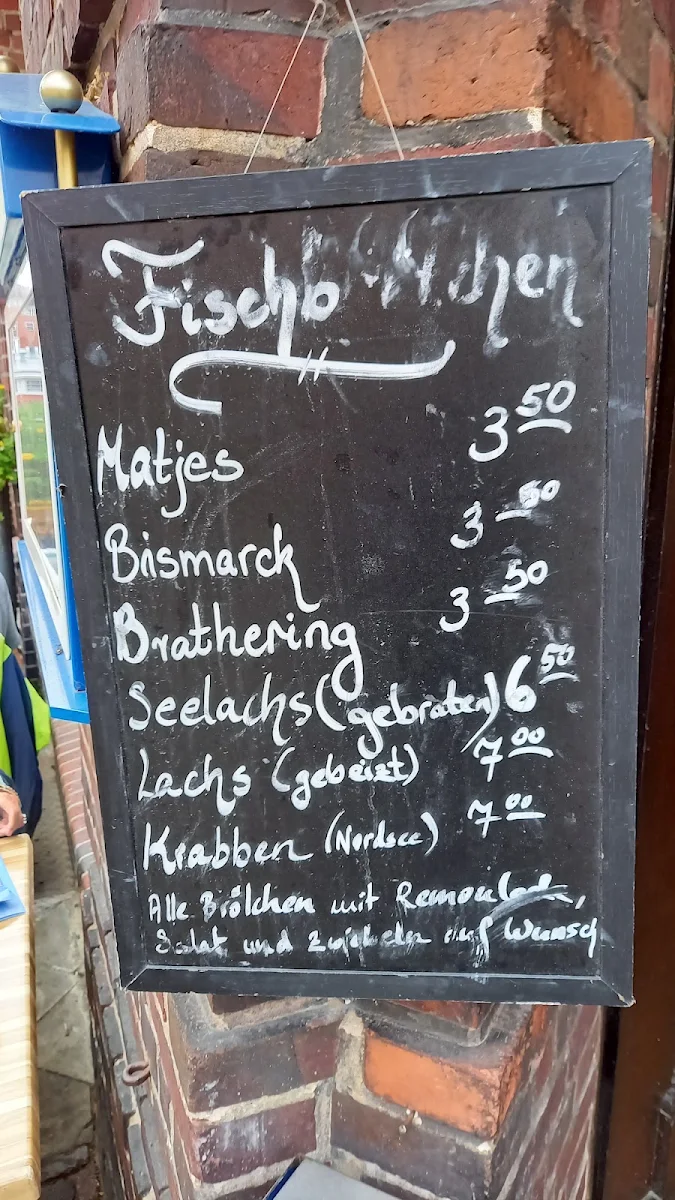 Fischbrötchen
Matjes 3 50
Bismarck 3 50
Brathering 3 50
Seelachs (gebraten) 6 50
Lachs (gebeizt) 7 00
Krabben (Nordsee) 7 00
Alle Brötchen mit Remoulade,
Salat und Zwiebeln auf Wunsch